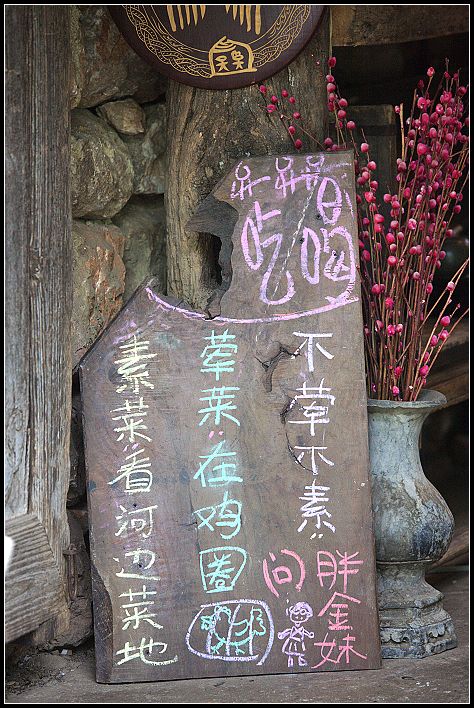 吃喝
素菜看河边菜地
荤菜在鸡圈
不荤不素
问
胖金妹